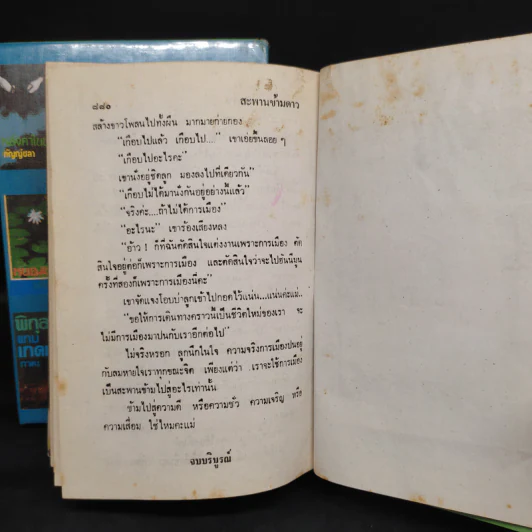 ๘๘๐ สะพานข้ามดาว
สล้างขาวโพลนไปทั้งผืน มากมายก่ายกอง
"เกือบไปแล้ว เกือบไป..." เขาเอ่ยขึ้นลอย ๆ
"เกือบไปอะไรคะ"
เขานั่งอยู่ชิดลูก มองลงไปที่เดียวกัน
"เกือบไม่ได้มานั่งกันอยู่อย่างนี้แล้ว"
"จริงค่ะ....ถ้าไม่ได้การเมือง"
"อะไรนะ" เขาร้องเสียงหลง
"อ้าว ! ก็ที่ฉันตัดสินใจแต่งงานเพราะการเมือง ตัด
สินใจอยู่ต่อก็เพราะการเมือง และตัดสินใจว่าจะไปฮันนีมูน
ครั้งที่สองก็เพราะการเมืองนี่คะ"
เขาขัดแจงโอบบ่าลูกเข้าไปกอดไว้แน่น...แน่นค่ะแม่..
"ขอให้การเดินทางคราวนี้เป็นชีวิตใหม่ของเรา จะ
ไม่มีการเมืองมาปนกับเราอีกต่อไป"
ไม่จริงหรอก ลูกนึกในใจ ความจริงการเมืองปนอยู่
กับลมหายใจเราทุกขณะจิต เพียงแต่ว่า เราจะใช้การเมือง
เป็นสะพานข้ามไปสู่อะไรเท่านั้น
ข้ามไปสู่ความดี หรือความชั่ว ความเจริญ หรือ
ความเสื่อม ใช่ไหมคะแม่
จบบริบูรณ์
พิกุล
แกม
เกด